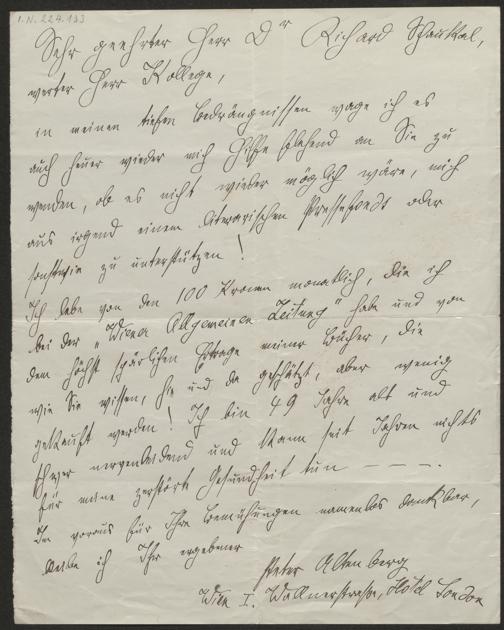 I.N. 224.133
Sehr geehrter Herr Dr Richard Schaukal,
werter Herr Kollege,
in meinen tiefen Bedrängnissen wage ich es
auch heuer wieder mich Hilfe flehend an Sie zu
wenden, ob es nicht wieder möglich wäre, mich
aus irgend einem literarischen Pressefond oder
sonstwie zu unterstützen!
Ich lebe von den 100 Kronen monatlich, die ich
bei der „Wiener Allgemeinen Zeitung“ habe und von
dem höchst spärlichen Ertrage meiner Bücher, die
wie Sie wissen, hie und da geschätzt, aber wenig
gekauft werden! Ich bin 49 Jahre alt und
schwer nervenleidend und kann seit Jahren nichts
für meine zerstörte Gesundheit tun — — —.
Im voraus für Ihre Bemühungen namenlos dankbar,
bleibe ich Ihr ergebener
Peter Altenberg
Wien I. Wallnerstraße, Hôtel London